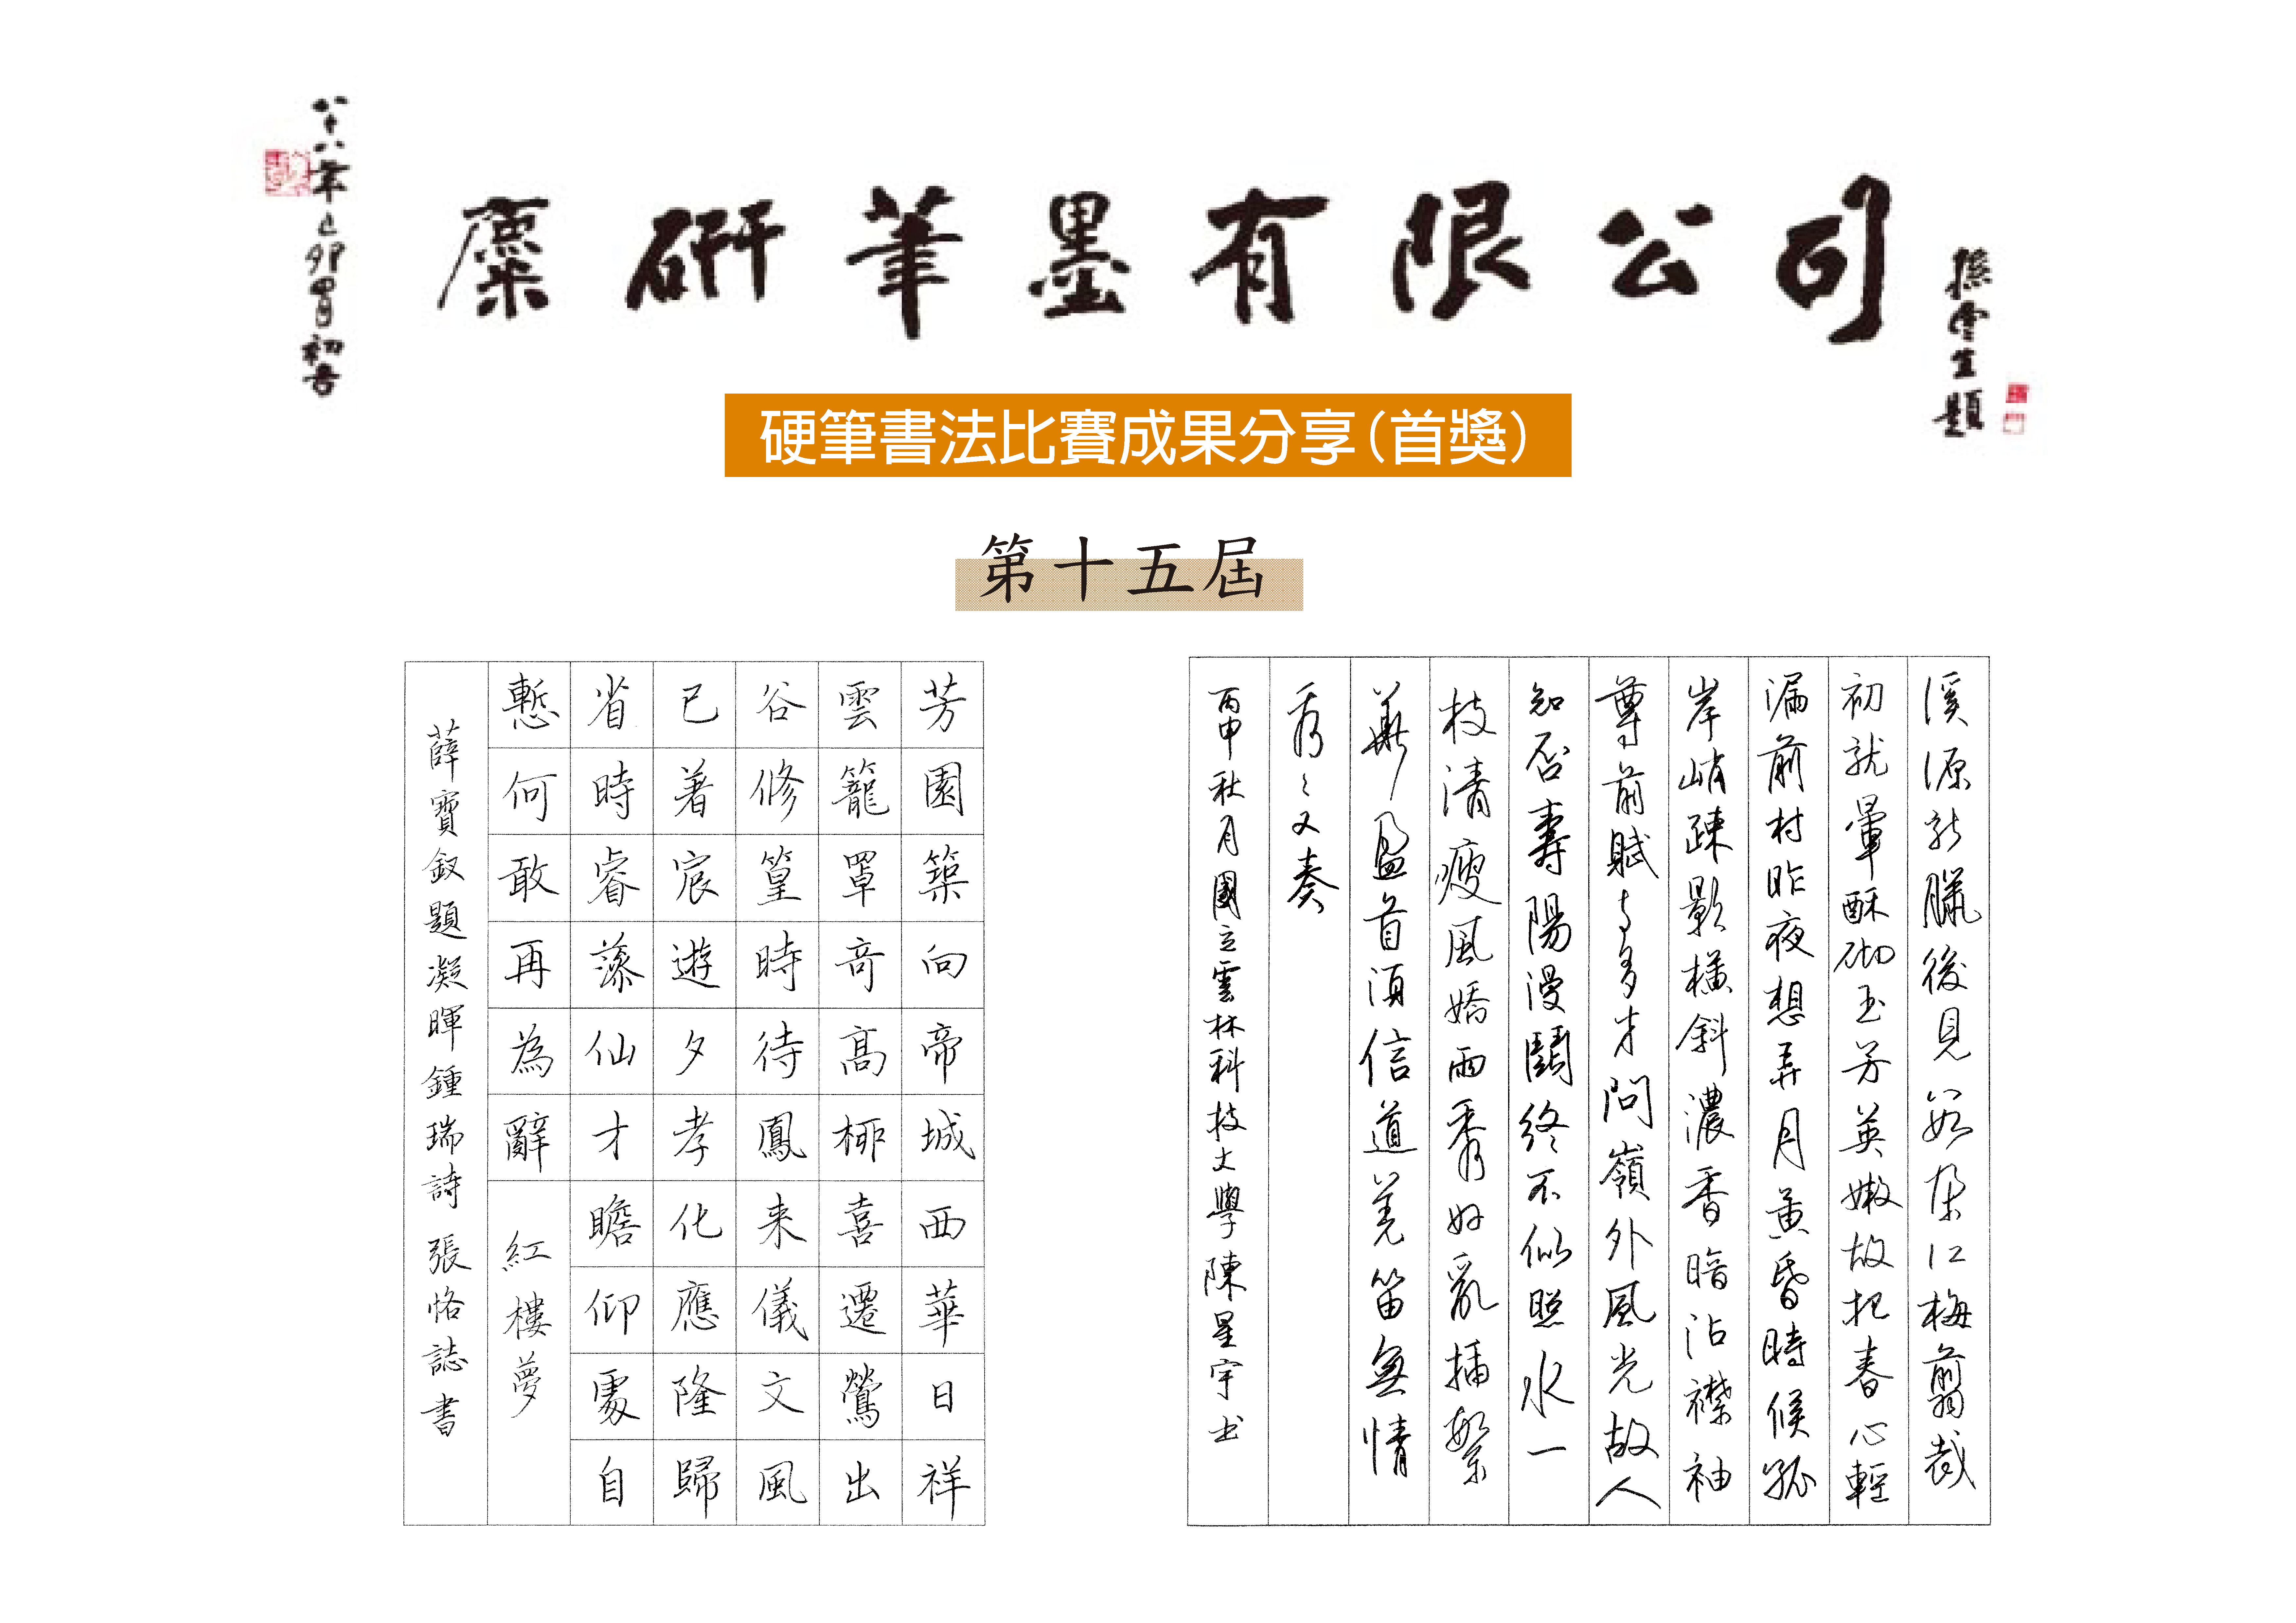 麋硏筆墨有限公司
孫雲生題
八十八年己卯四月初吉
硬筆書法比賽成果分享(首獎)
第十五屆
溪源新臘後見數朵江梅翦裁
初就暈酥砌玉芳英嫩故把春心輕
漏前村昨夜想弄月黃昏時候孤
岸峭疎影橫斜濃香暗沾襟袖
尊前賦與多才問嶺外風光故人
知否壽陽漫鬪終不似照水一
枝清瘦風嬌雨秀好亂插繁
華盈首須信道羌笛無情
看〻又奏
丙申秋月國立雲林科技大學陳星宇书
芳園築向帝城西華日祥
雲籠罩奇高柳喜遷鶯出
谷修篁時待鳳来儀文風
已著宸遊夕孝化應隆歸
省時睿藻仙才瞻仰處自
慙何敢再為辭 紅樓夢
薛寶釵題凝暉鍾瑞詩 張恪誌書